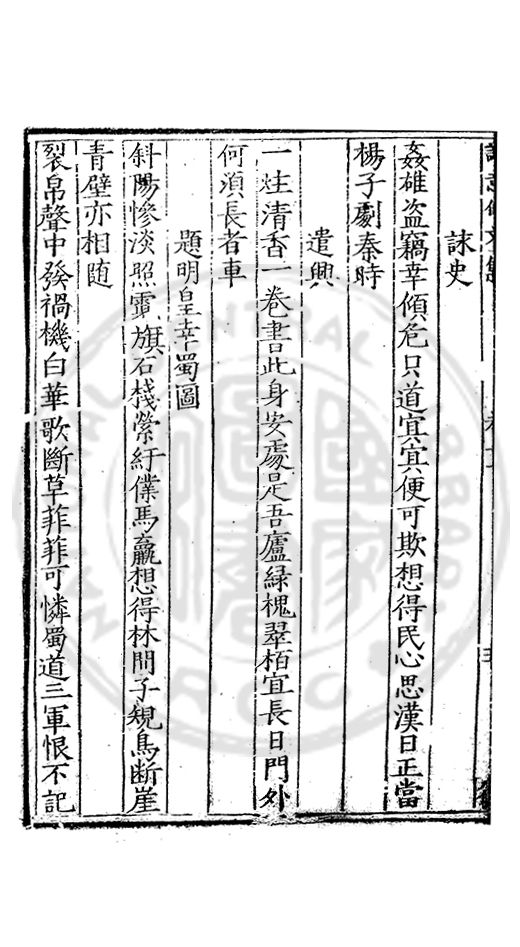 詠史
姦雄盗竊幸傾危只道㝠㝠便可欺想得民心思漢日正當
楊子劇秦時
遣興
一炷清香一卷書此身安處是吾廬緑槐翠栢宜長日門外
何湏長者車
題明皇幸蜀圖
斜陽慘淡照霓旗石棧縈紆僕馬羸想得林間子規鳥断崖
青壁亦相随
裂帛聲中發禍機白華歌斷草菲菲可憐蜀道三軍恨不記